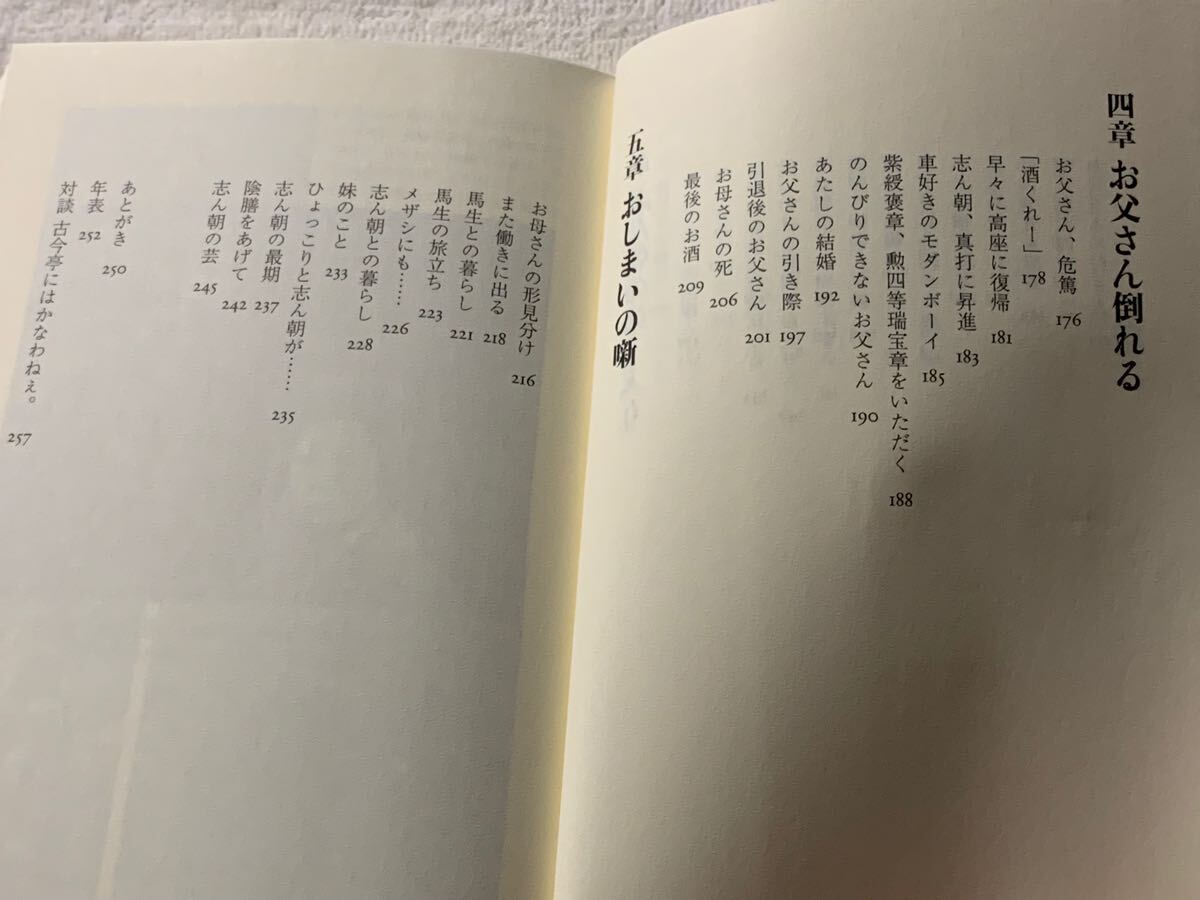 四章 お父さん倒れる
お父さん、危篤 176
「酒くれー」 178
早々に高座に復帰 181
志ん朝、真打に昇進 183
車好きのモダンボーイ 185
紫綬褒章、勲四等瑞宝章をいただく 188
のんびりできないお父さん 190
あたしの結婚 192
お父さんの引き際 197
引退後のお父さん 201
お母さんの死 206
最後のお酒 209
五章 おしまいの噺
お母さんの形見分け 216
また働きに出る 218
馬生との暮らし 221
馬生の旅立ち 223
メザシにも…… 226
志ん朝との暮らし 228
妹のこと 233
ひょっこりと志ん朝が…… 235
志ん朝の最期 237
陰膳をあげて 242
志ん朝の芸 245
あとがき 250
年表 252
対談 古今亭にはかなわねぇ。 257